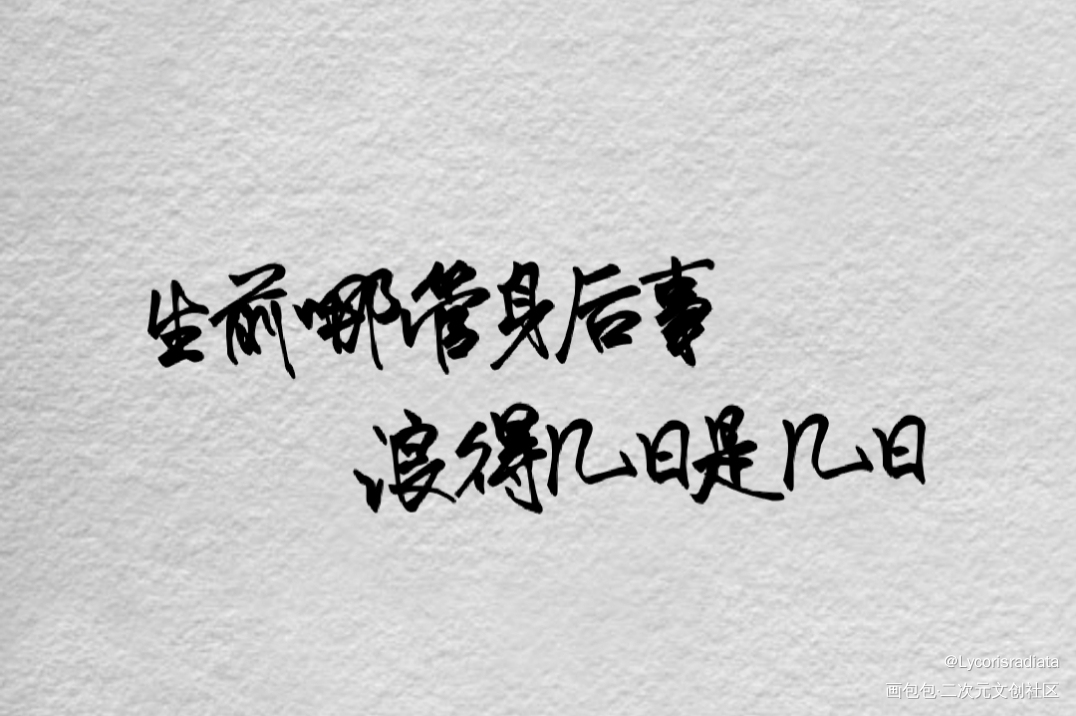 生前哪管身后事
浪得几日是几日
@Lycorisradiata
画包包·二次元文创社区